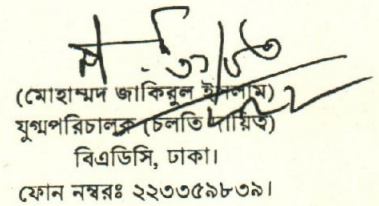 (মোহাম্মদ জাকিরুল ইসলাম)
যুগ্মপরিচালক (চলতি দায়িত্ব)
বিএডিসি, ঢাকা।
ফোন নম্বরঃ ২২৩৩৫৯৮৩৯।